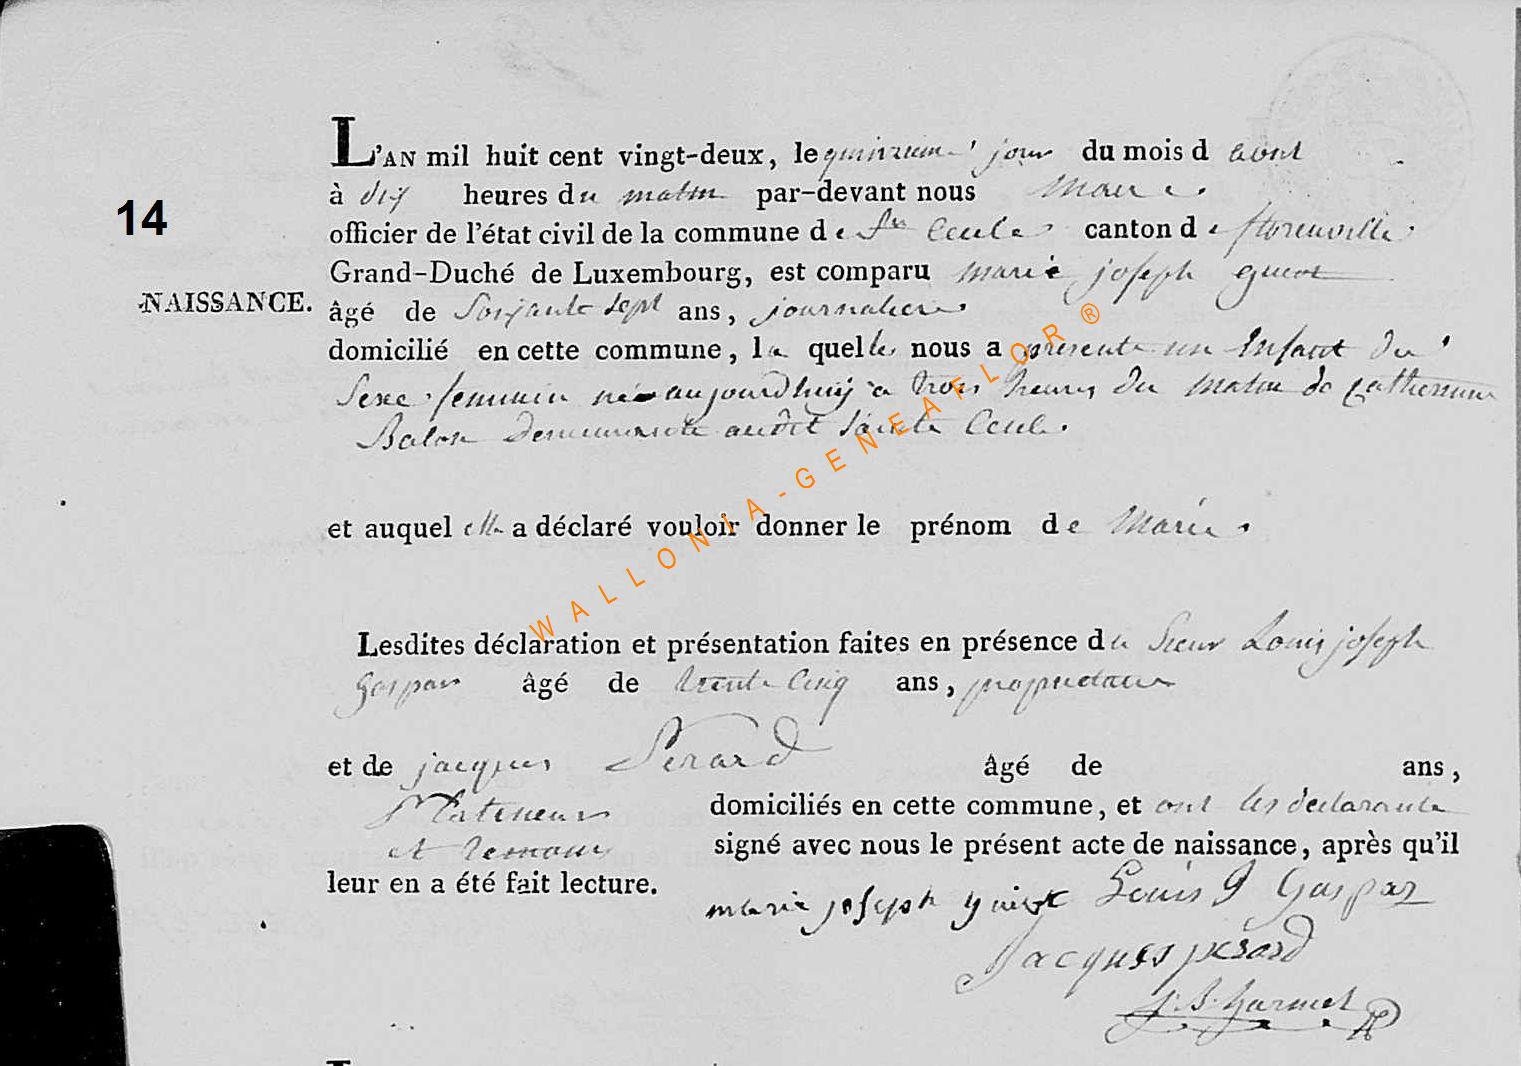 L'AN mil huit cent vingt-deux, le quinzieme jour du mois d'
à dix heures du matin par-devant nous Maire
officier de l'état civil de la commune de Ste Cecile canton de florenville
Grand-Duché de Luxembourg, est comparu marie joseph
âgé de Soixante sept ans, journaliere
NAISSANCE.
14
domicilié en cette commune, la quelle nous a presenté un Enfant du
Sexe feminin née aujourdhuij a trois heures du matin de Catherinne
Balon demeurante audit Sainte Cecile.
et auquel elle a déclaré vouloir donner le prénom de Marie.
Lesdites déclaration et présentation faites en présence du Sieur Louis joseph
Gaspar âgé de trente Cinq ans, proprietaire
et de jacques Perard âgé de ans,
domiciliés en cette commune, et ont les declarante
et temoins signé avec nous le présent acte de naissance, après qu'il
leur en a été fait lecture.
marie joseph Louis J Gaspar
Jacques perard
J. B.
WALLONIA-GENEAFLOR®